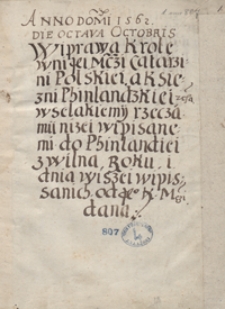 ANNO DOMI 1562
DIE OCTAVA OCTOBRIS
Wiprawa Krole
wni iei Mczi Catarzi
ni Polskiei, a Ksie
zni Phinlandzkiei ze
wselakiemi rzecza
mi nizei wipisane
mi do Phinlandiei
z wilna, Roku, i
dnia wiszei wipis
sanich. od Je° K. Mczi
dana.
807